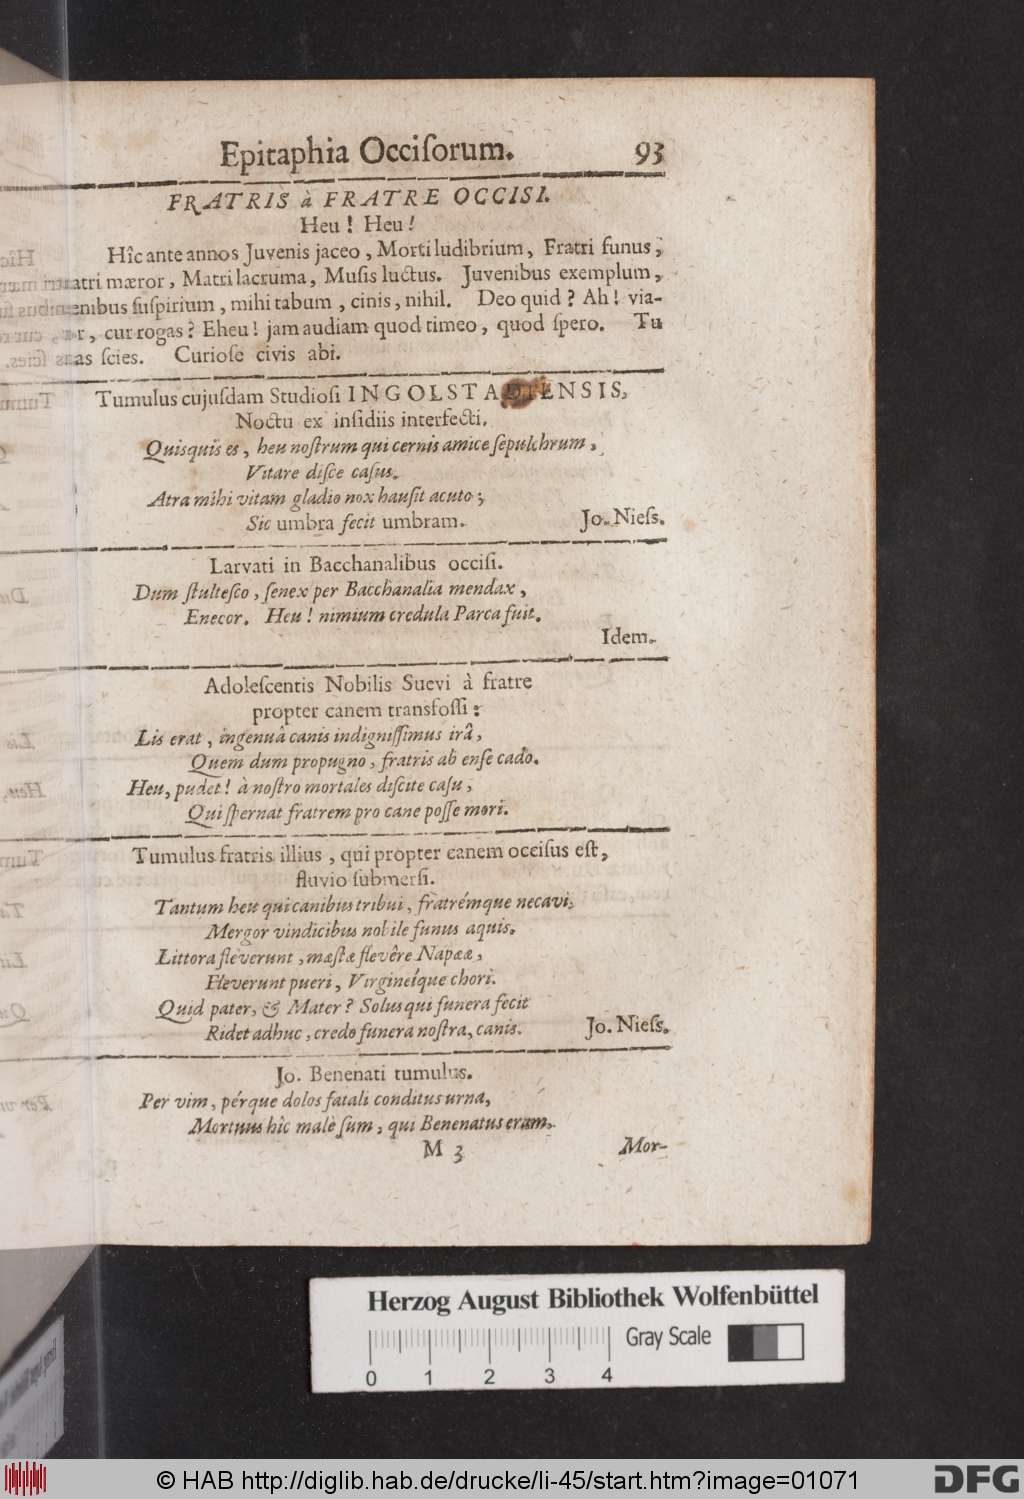 Epitaphia Occiſorum. 93
FRATRIS à FRATRE OCCISI.
Heu! Heu!
Hîc ante annos Juvenis jaceo, Morti ludibrium, Fratri funus,
atri mæror, Matri lacruma, Muſis luctus. Juvenibus exemplum,
enibus ſuſpirium, mihi tabum, cinis, nihil. Deo quid? Ah! via-
r, cur rogas? Eheu! jam audiam quod timeo, quod ſpero. Tu
as ſcies. Curioſe civis abi.
Tumulus cujuſdam Studioſi INGOLSTADIENSIS,
Noctu ex inſidiis interfecti.
Quisquis es, heu noſtrum qui cernis amice ſepulchrum,
Vitare diſce caſus.
Atra mihi vitam gladio nox hauſit acuto;
Sic umbra fecit umbram. Jo. Nieſs.
Larvati in Bacchanalibus occiſi.
Dum ſtulteſco, ſenex per Bacchanalia mendax,
Enecor. Heu! nimium credula Parca fuit.
Idem.
Adoleſcentis Nobilis Suevi à fratre
propter canem transfoſſi:
Lis erat, ingenuâ canis indigniſſimus irâ,
Quem dum propugno, fratris ab enſe cado.
Heu, pudet! à noſtro mortales diſcite caſu,
Qui ſpernat fratrem pro cane poſſe mori.
Tumulus fratris illius, qui propter canem occiſus eſt,
fluvio ſubmerſi.
Tantum heu qui canibus tribui, fratrémque necavi,
Mergor vindicibus nobile funus aquis.
Littora fleverunt, mæſtæ flevêre Napææ,
Fleverunt pueri, Virgineíque chori.
Quid pater, & Mater? Solus qui funera fecit
Ridet adhuc, credo funera noſtra, canis. Jo. Nieſs.
Jo. Benenati tumulus.
Per vim, pérque dolos fatali conditus urna,
Mortuus hîc malè ſum, qui Benenatus eram.
M 3 Mor-
Herzog August Bibliothek Wolfenbüttel
Gray Scale
0 1 2 3 4
© HAB http://diglib.hab.de/drucke/li-45/start.htm?image=01071
DFG